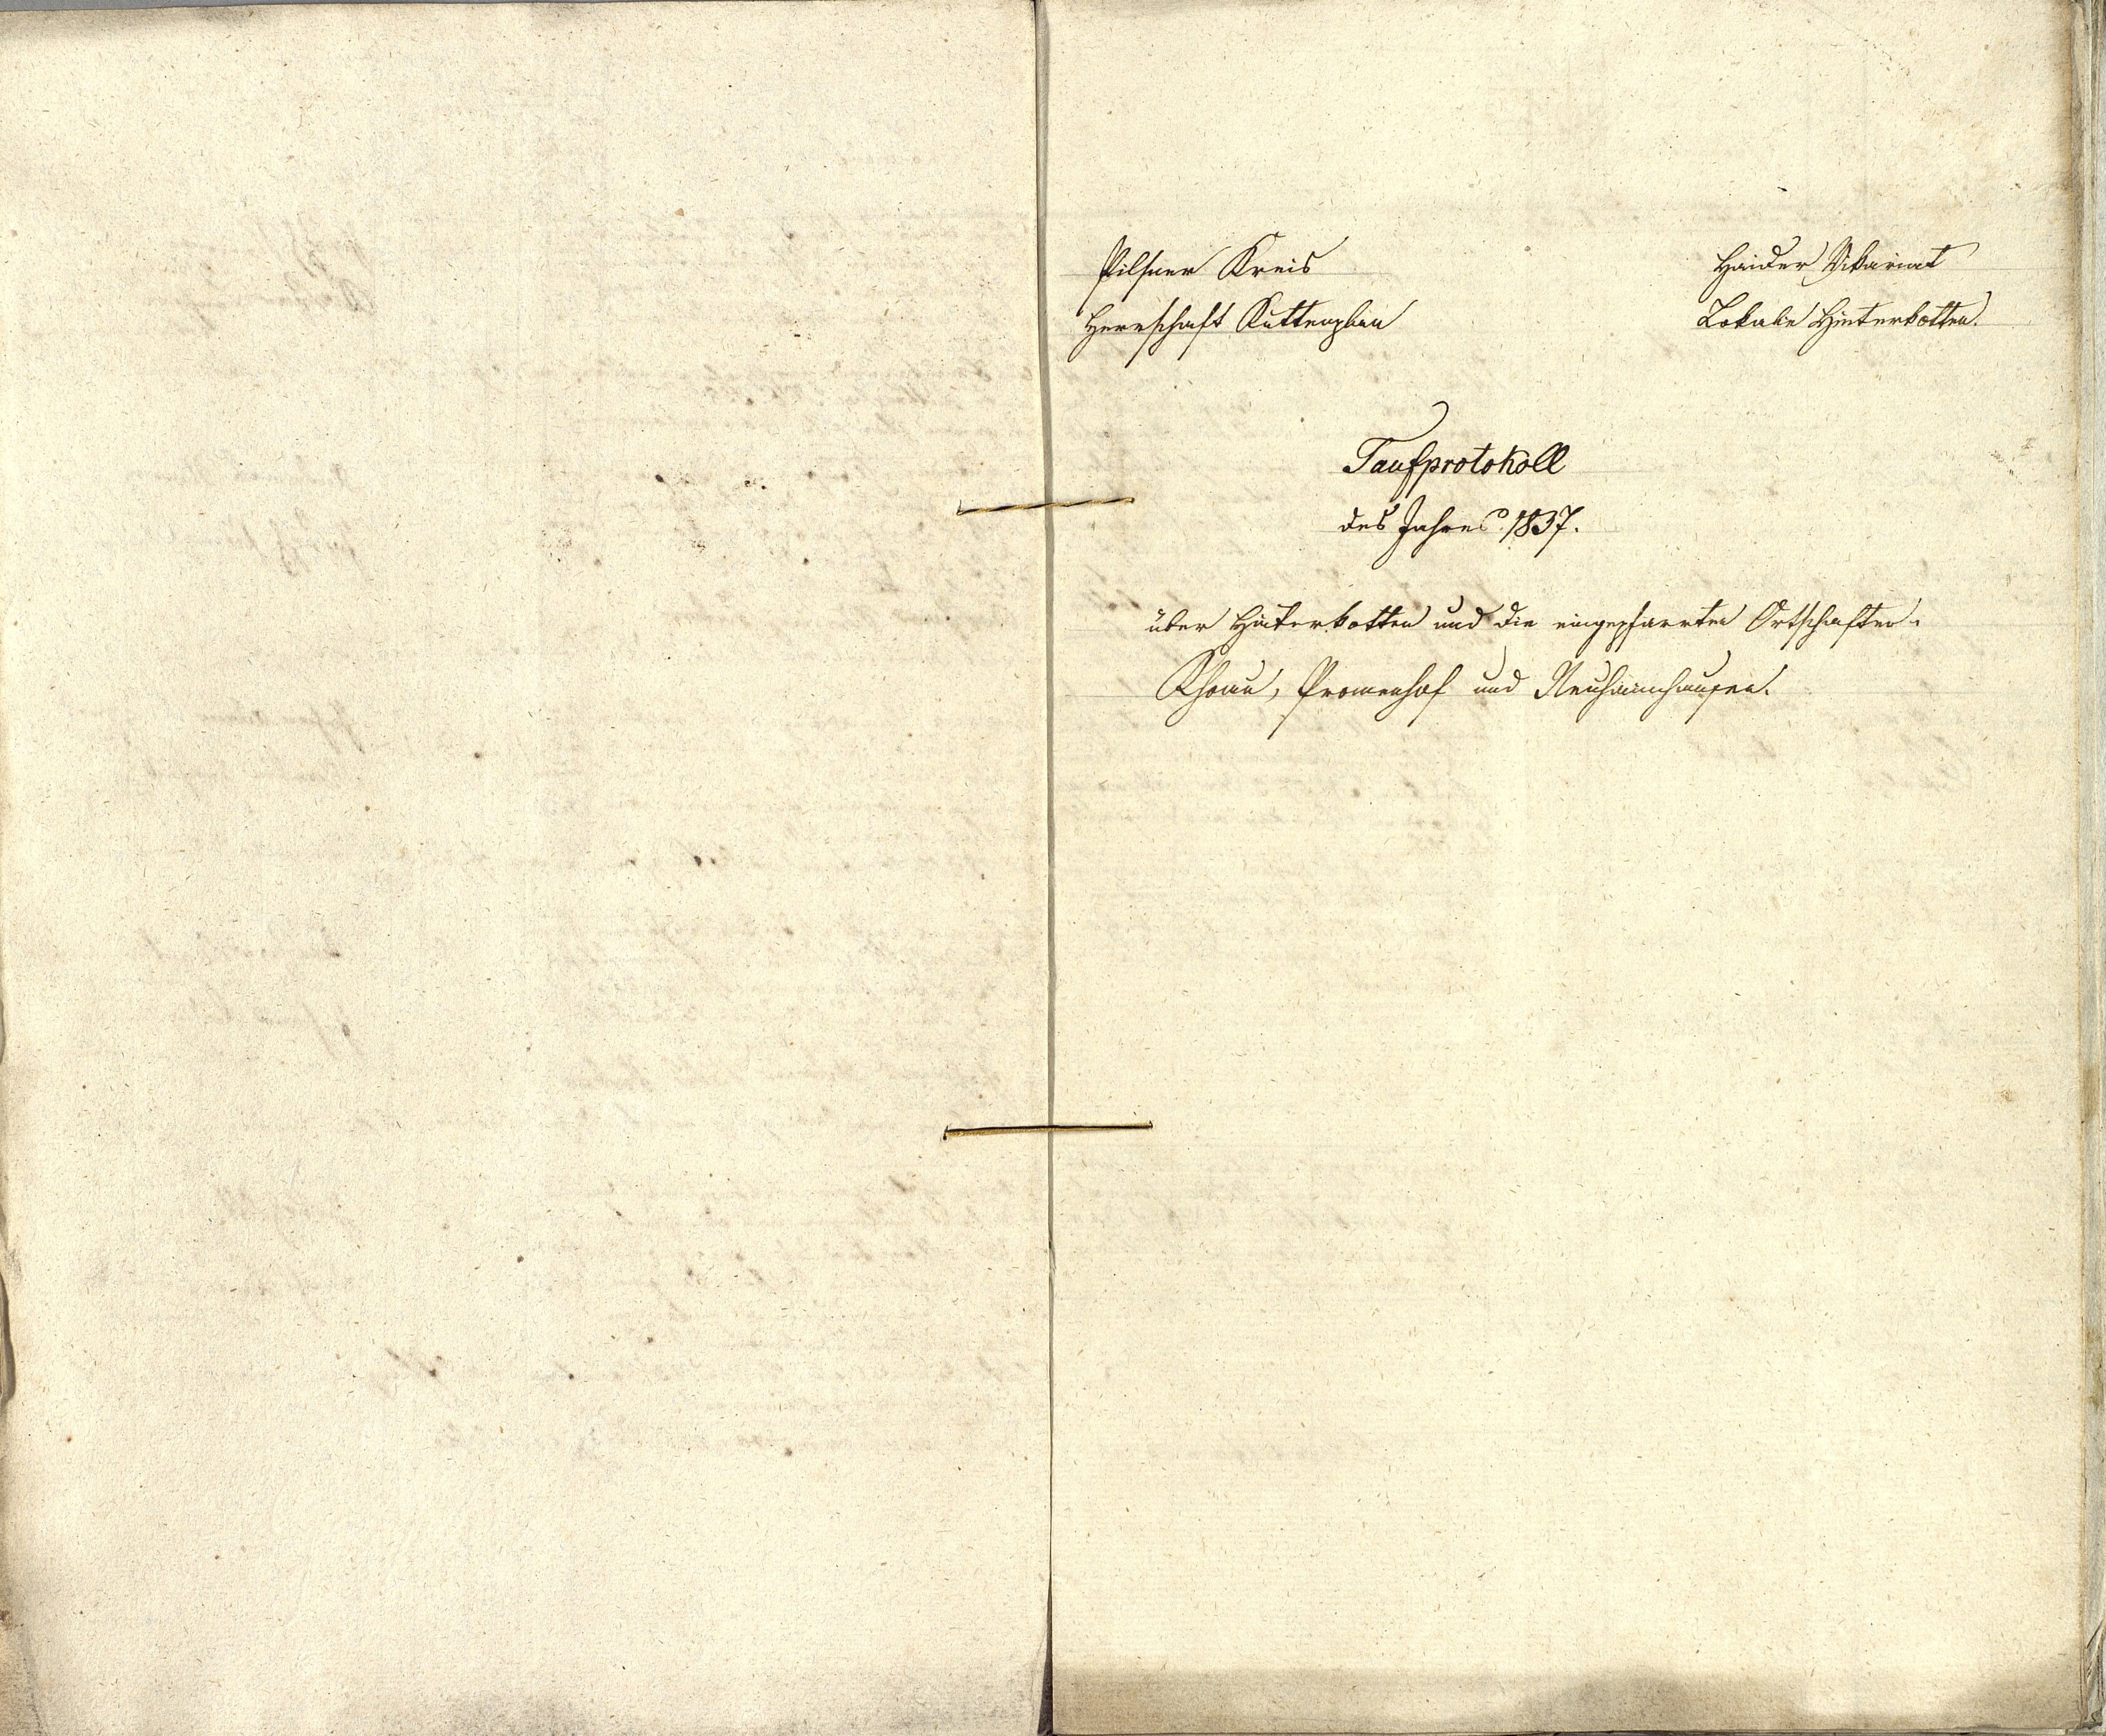 Pilsner Kreis
Haider Vikariat
Herrschaft Kuttenplan
Lokalie Hinterkotten.
Taufprotokoll
des Jahres 1837.
über Hinterkotten und die eingepfarrten Ortschaften:
Khoau, Promenhof und Neuhäimhausen.